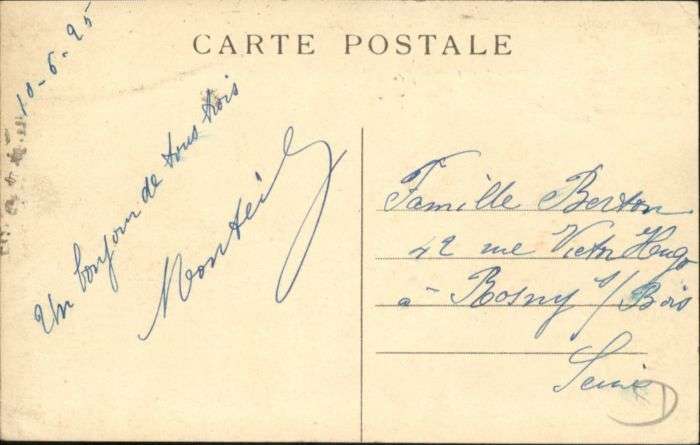 CARTE POSTALE
10-6-25
Un bonjour de tous trois
Famille Berton
42 rue Victor Hugo
à Rosny s/ Bois
Seine